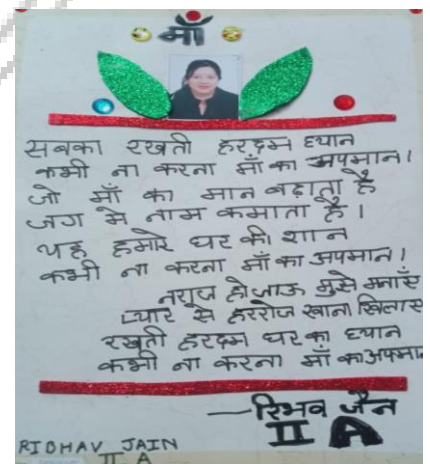 माँ
सबका रखती हरदम ध्यान
कभी ना करना माँ का अपमान।
जो माँ का मान बढ़ाता है
जग में नाम कमाता है।
यह हमारे घर की शान
कभी ना करना माँ का अपमान।
नराज हो जाऊ मुझे मनाएँ
प्यार से हररोज खाना खिलाए
रखती हरदम घर का ध्यान
कभी ना करना माँ का अपमान
—रिभव जैन
II A
RIBHAV JAIN
II A